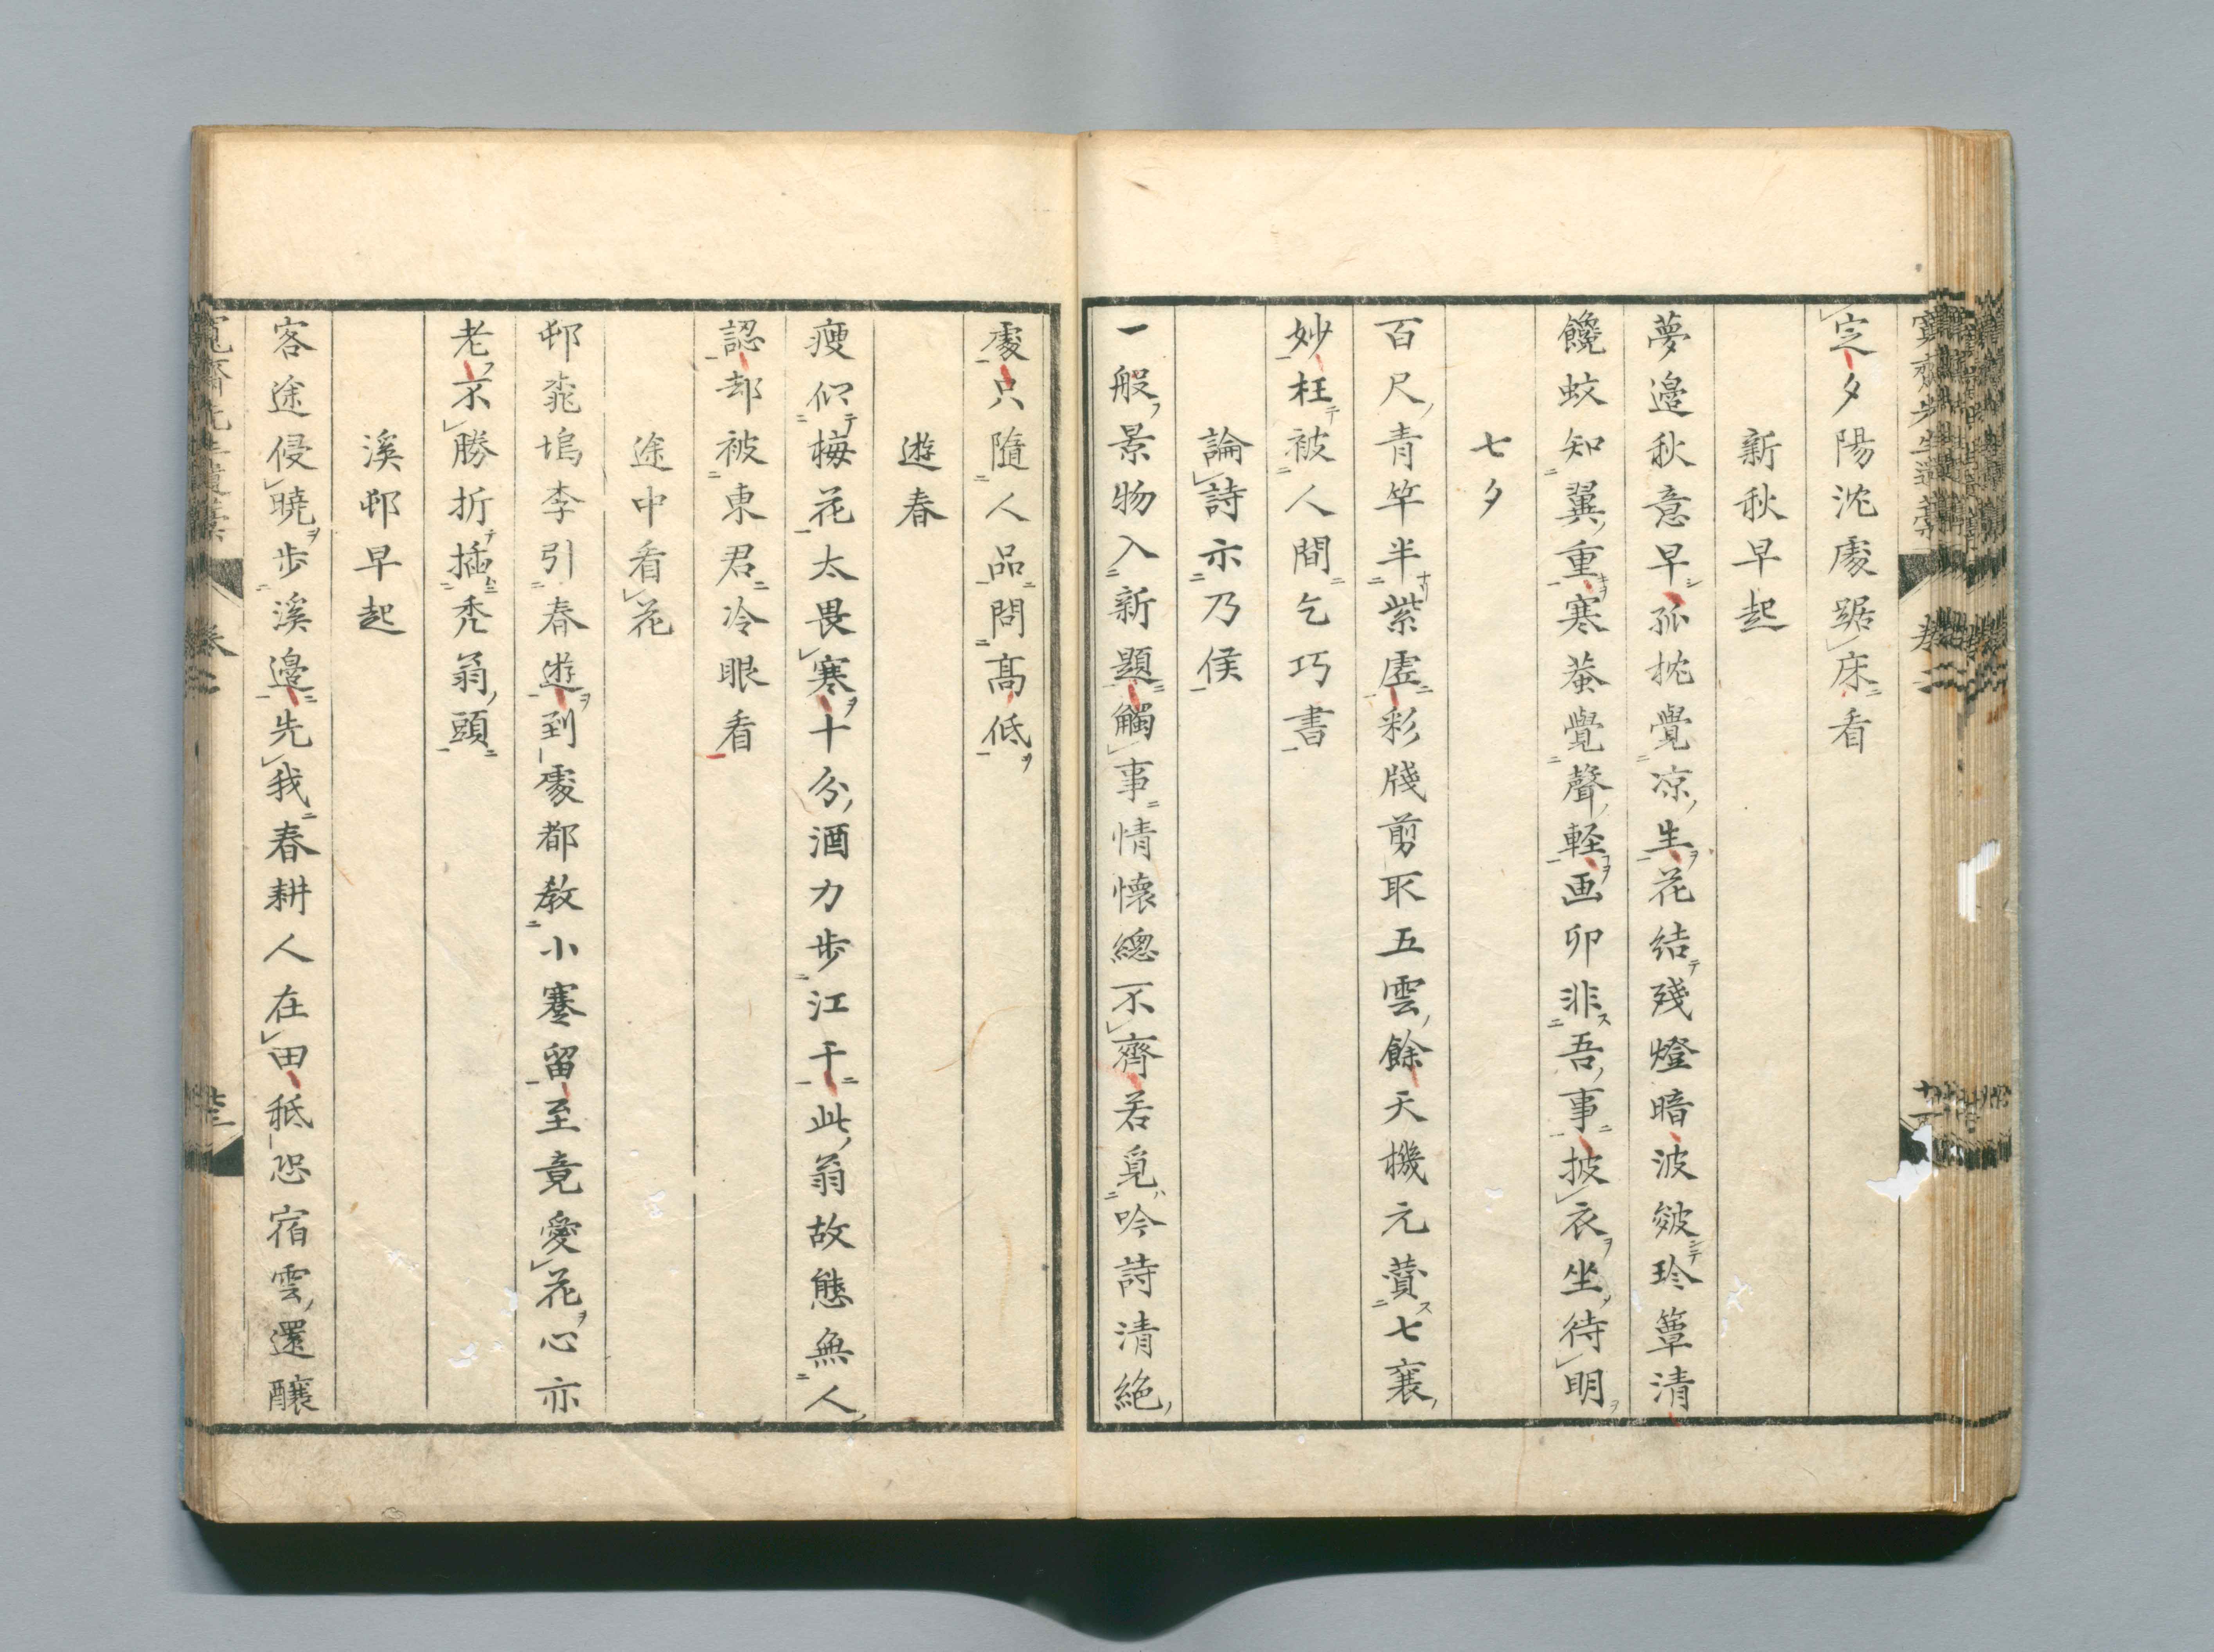 定夕陽沈處踞床看
新秋早起
夢邉秋意早孤枕覺凉生花結殘燈暗波皴玲簟清
饞蚊知翼重寒蛬覺聲軽画卯非吾事披衣坐待明
七夕
百尺青竿半紫虛彩牋剪取五雲餘天機元賷七襄
妙枉被人間乞巧書
論詩示乃侯
一般景物入新題觸事情懷總不齊若覓吟詩清絶
處只隨人品問髙低
遊春
瘦似梅花太畏寒十分酒力步江干此翁故態無人
認却被東君冷眼看
途中看花
邨桃塢李引春遊到處都教小蹇留至竟愛花心亦
老不勝折插禿翁頭
溪邨早起
客途侵曉步溪邉先我春耕人在田秪恐宿雲還釀
卷二